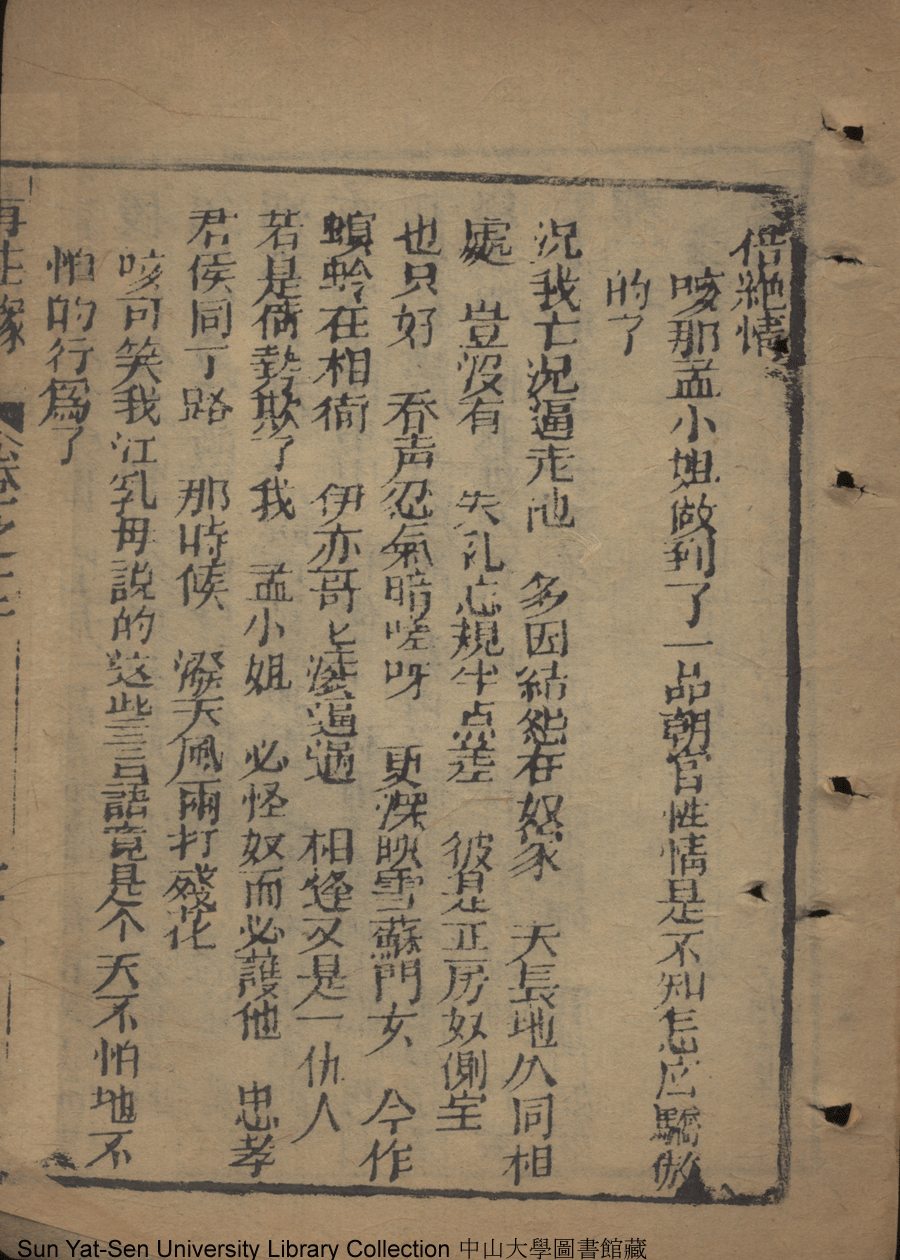 倍絶情
咳那孟小姐做到了一品朝官性情是不知怎庅驕傲
的了
况我亡况逼走他 多因結怨在奴家 天長地久同相
處 豈沒有 失礼忘規半点差 彼是正房奴側室
也只好 吞声忍氣暗嗟呀 更深映雪蘇門女 今作
螟蛉在相衙 伊亦哥哥逼過 相逢又是一仇人
若是倚勢欺了我 孟小姐 必怪奴而必護他 忠孝
君侯同了路 那時候 潑天風雨打殘花
咳可笑我江乳母説的这些言語竟是个天不怕地不
怕的行爲了
再生緣 卷之十
Sun Yat-Sen University Library Collection 中山大學圖書館藏